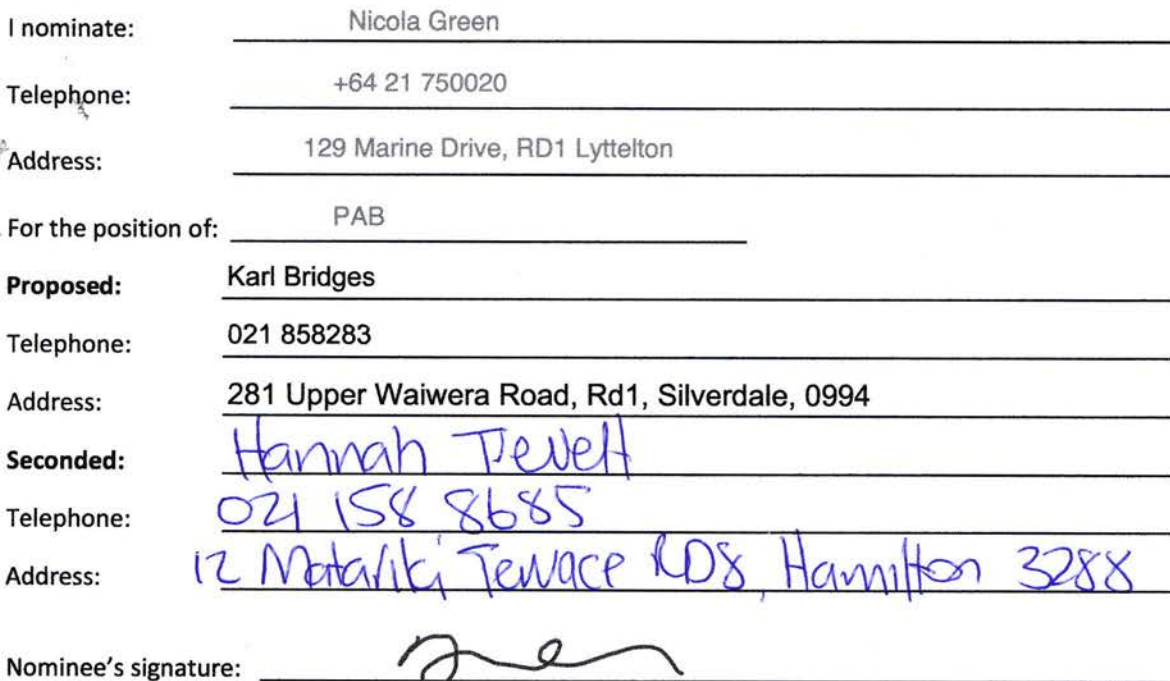 I nominate: Nicola Green
Telephone: +64 21 750020
Address: 129 Marine Drive, RD1 Lyttelton
For the position of: PAB
Proposed: Karl Bridges
Telephone: 021 858283
Address: 281 Upper Waiwera Road, Rd1, Silverdale, 0994
Seconded: Hannah
Telephone: 021 158 8685
Address: 12 Matariki Terrace RD8, Hamilton 3288
Nominee's signature: